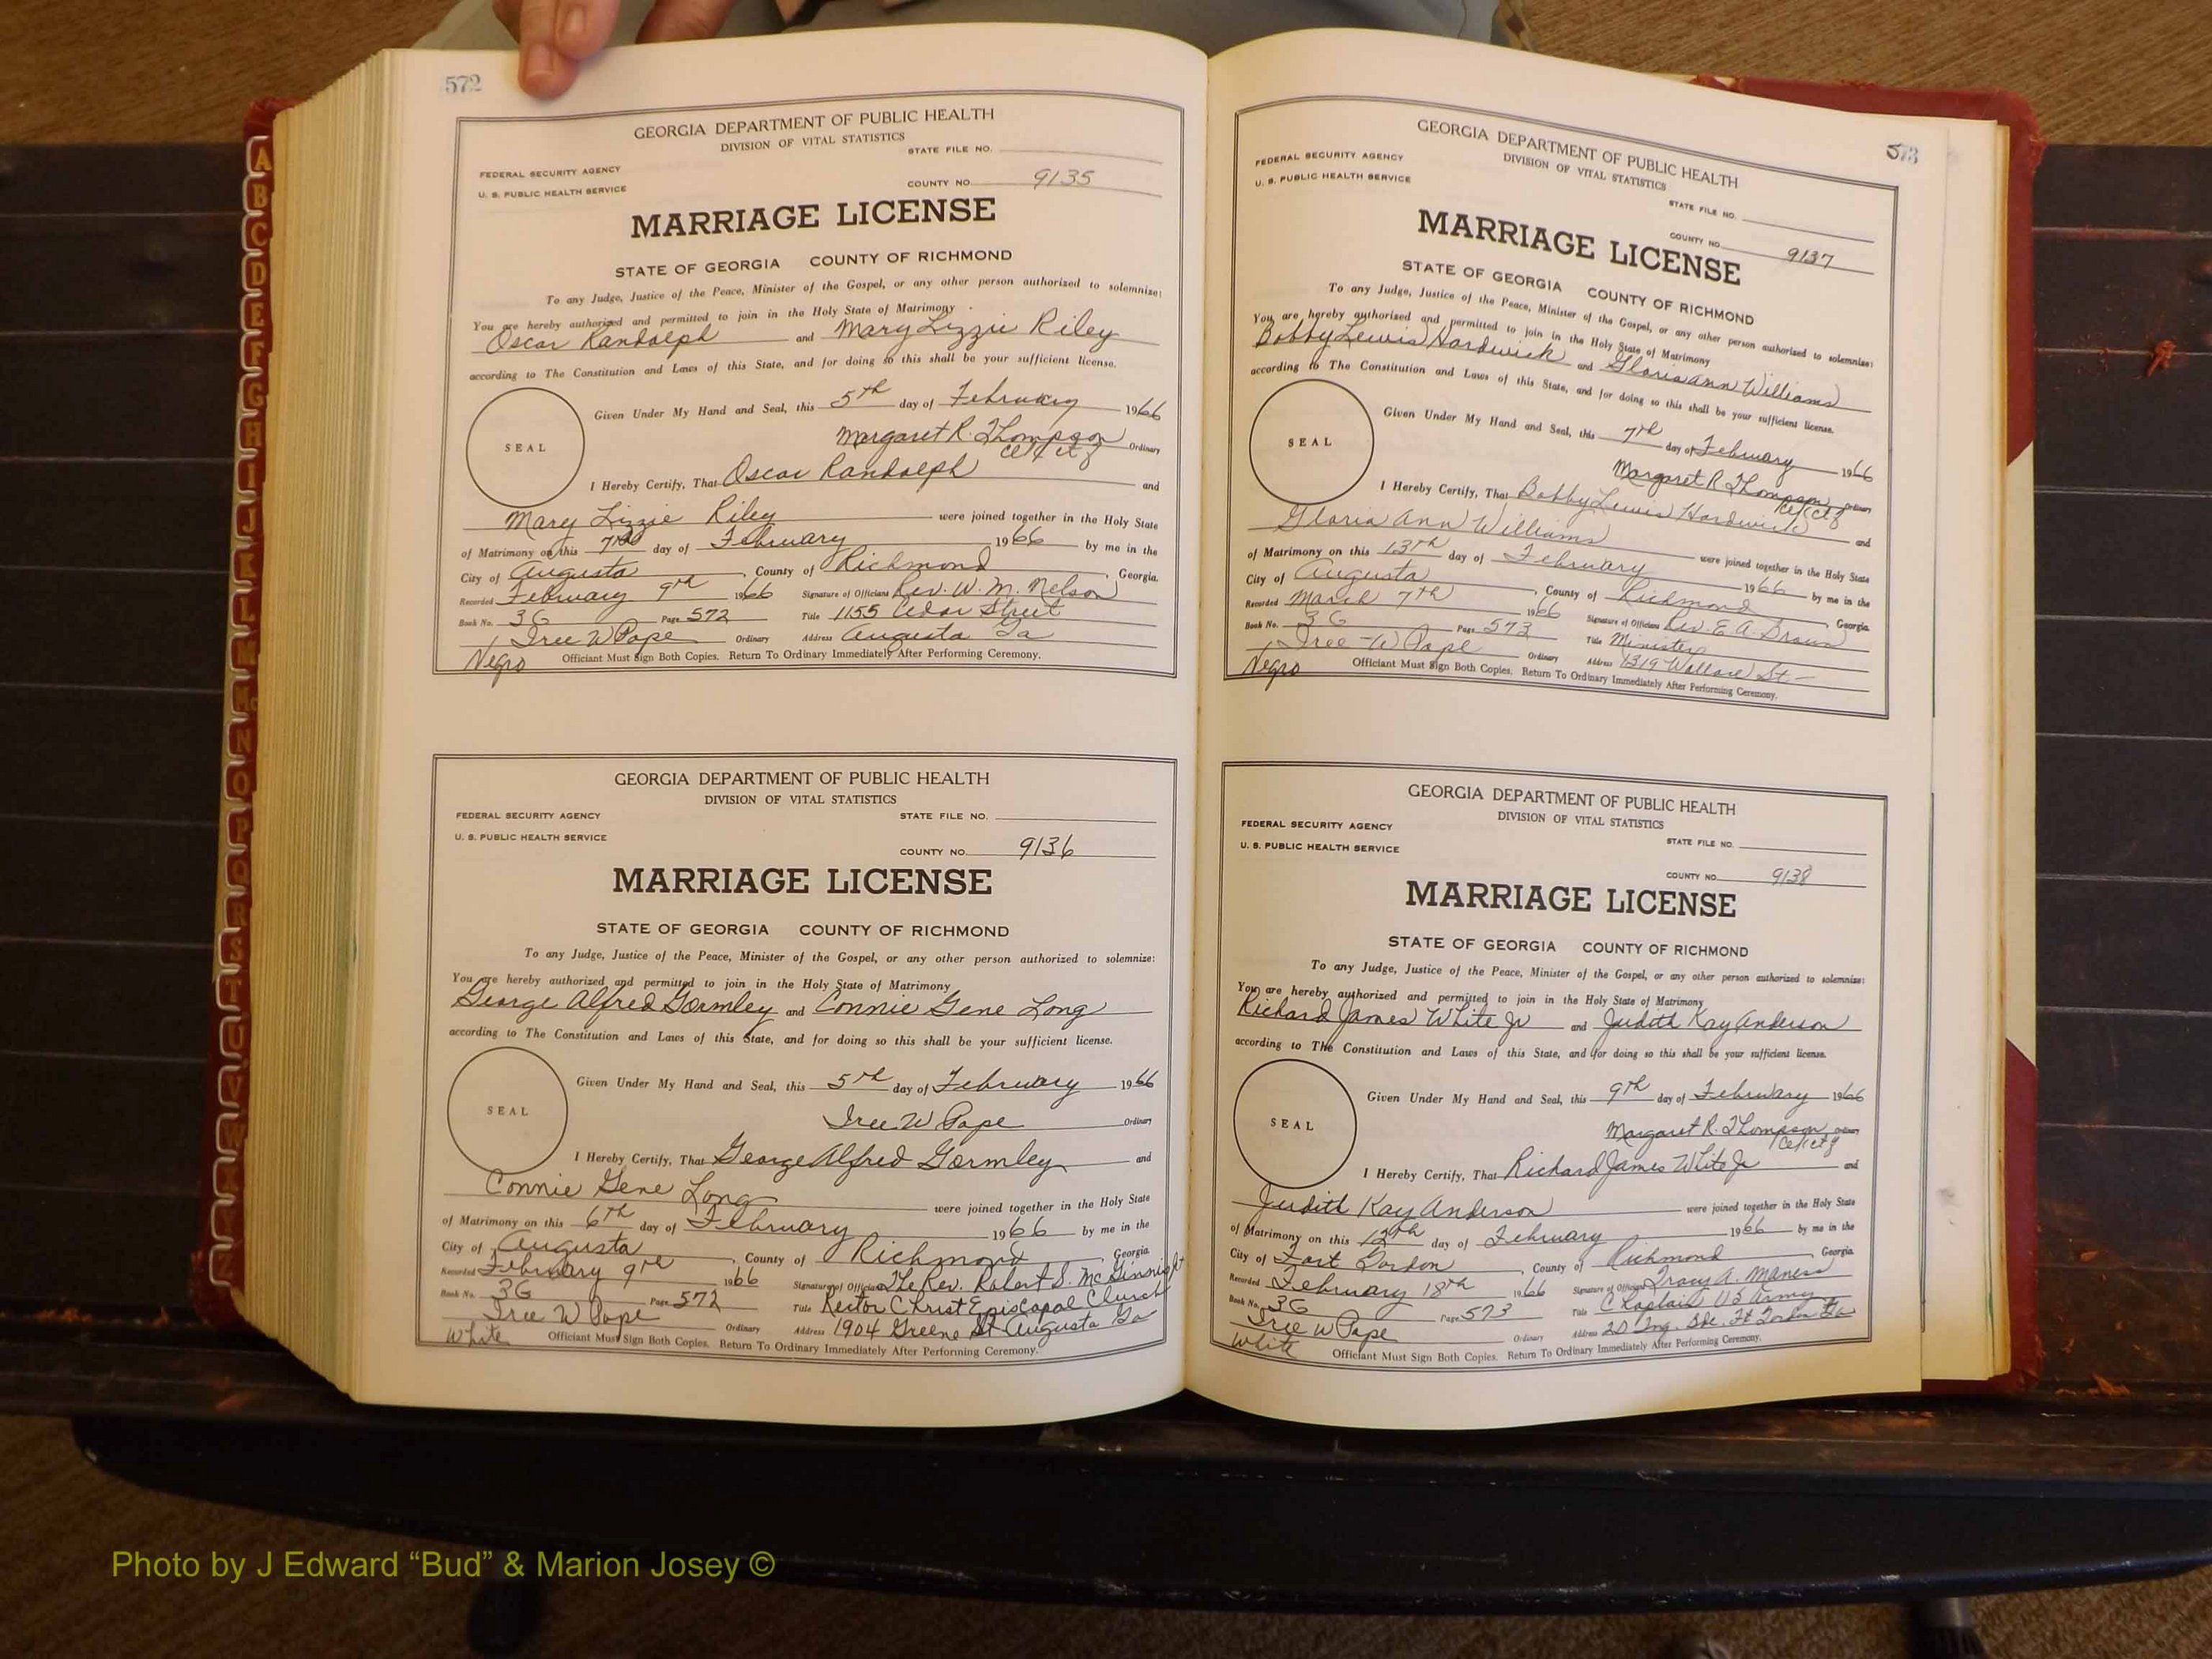 572
GEORGIA DEPARTMENT OF PUBLIC HEALTH
DIVISION OF VITAL STATISTICS
STATE FILE NO.
FEDERAL SECURITY AGENCY
U. S. PUBLIC HEALTH SERVICE
COUNTY NO. 9135
MARRIAGE LICENSE
STATE OF GEORGIA COUNTY OF RICHMOND
To any Judge, Justice of the Peace, Minister of the Gospel, or any other person authorized to solemnize:
You are hereby authorized and permitted to join in the Holy State of Matrimony
Oscar Randolph and Mary Lizzie Riley
according to The Constitution and Laws of this State, and for doing so this shall be your sufficient license.
SEAL
Given Under My Hand and Seal, this 5th day of February 1966
Margaret R. Thompson Ordinary
I Hereby Certify, That Oscar Randolph and
Mary Lizzie Riley were joined together in the Holy State
of Matrimony on this 7th day of February 1966 by me in the
City of Augusta, County of Richmond, Georgia.
Recorded February 9th 1966 Signature of Officiant Rev. W. M. Nelson
Book No. 3G Page 572 Title 1155 Cedar Street
Iree W Pope Ordinary Address Augusta Ga
Negro Officiant Must Sign Both Copies. Return To Ordinary Immediately After Performing Ceremony.
GEORGIA DEPARTMENT OF PUBLIC HEALTH
DIVISION OF VITAL STATISTICS
FEDERAL SECURITY AGENCY STATE FILE NO.
U. S. PUBLIC HEALTH SERVICE
COUNTY NO. 9136
MARRIAGE LICENSE
STATE OF GEORGIA COUNTY OF RICHMOND
To any Judge, Justice of the Peace, Minister of the Gospel, or any other person authorized to solemnize:
You are hereby authorized and permitted to join in the Holy State of Matrimony
George Alfred Gormley and Connie Gene Long
according to The Constitution and Laws of this State, and for doing so this shall be your sufficient license.
SEAL
Given Under My Hand and Seal, this 5th day of February 1966
Iree W Pope Ordinary
I Hereby Certify, That George Alfred Gormley and
Connie Gene Long were joined together in the Holy State
of Matrimony on this 6th day of February 1966 by me in the
City of Augusta, County of Richmond, Georgia.
Recorded February 9th 1966 Signature of Officiant The Rev. Robert S. McGinnis
Book No. 3G Page 572 Title Rector Christ Episcopal Church
Iree W Pope Ordinary Address 1904 Greene St Augusta Ga
White Officiant Must Sign Both Copies. Return To Ordinary Immediately After Performing Ceremony.
573
GEORGIA DEPARTMENT OF PUBLIC HEALTH
DIVISION OF VITAL STATISTICS
FEDERAL SECURITY AGENCY
U. S. PUBLIC HEALTH SERVICE
STATE FILE NO.
COUNTY NO. 9137
MARRIAGE LICENSE
STATE OF GEORGIA COUNTY OF RICHMOND
To any Judge, Justice of the Peace, Minister of the Gospel, or any other person authorized to solemnize:
You are hereby authorized and permitted to join in the Holy State of Matrimony
Bobby Lewis Hardwick and Gloria Ann Williams
according to The Constitution and Laws of this State, and for doing so this shall be your sufficient license.
SEAL
Given Under My Hand and Seal, this 7th day of February 1966
Margaret R Thompson Ordinary
I Hereby Certify, That Bobby Lewis Hardwick and
Gloria Ann Williams were joined together in the Holy State
of Matrimony on this 13th day of February 1966 by me in the
City of Augusta, County of Richmond, Georgia.
Recorded March 7th 1966 Signature of Officiant Rev. E. A. Braun
Book No. 3G Page 573 Title Minister
Iree W Pope Ordinary Address 1319 Wallace St
Negro Officiant Must Sign Both Copies. Return To Ordinary Immediately After Performing Ceremony.
GEORGIA DEPARTMENT OF PUBLIC HEALTH
DIVISION OF VITAL STATISTICS
FEDERAL SECURITY AGENCY
U. S. PUBLIC HEALTH SERVICE
STATE FILE NO.
COUNTY NO. 9138
MARRIAGE LICENSE
STATE OF GEORGIA COUNTY OF RICHMOND
To any Judge, Justice of the Peace, Minister of the Gospel, or any other person authorized to solemnize:
You are hereby authorized and permitted to join in the Holy State of Matrimony
Richard James White Jr and Judith Kay Anderson
according to The Constitution and Laws of this State, and for doing so this shall be your sufficient license.
SEAL
Given Under My Hand and Seal, this 9th day of February 1966
Margaret R. Thompson Ordinary
I Hereby Certify, That Richard James White Jr and
Judith Kay Anderson were joined together in the Holy State
of Matrimony on this 12th day of February 1966 by me in the
City of Fort Gordon, County of Richmond, Georgia.
Recorded February 18th 1966 Signature of Officiant Tracy A. Maness
Book No. 3G Page 573 Title Chaplain US Army
Iree W Pope Ordinary Address Ft Gordon Ga
White Officiant Must Sign Both Copies. Return To Ordinary Immediately After Performing Ceremony.
A
B
C
D
E
F
G
H
I
J
K
L
M
Mc
N
O
P
Q
R
S
T
U
V
W
Photo by J Edward “Bud” & Marion Josey ©